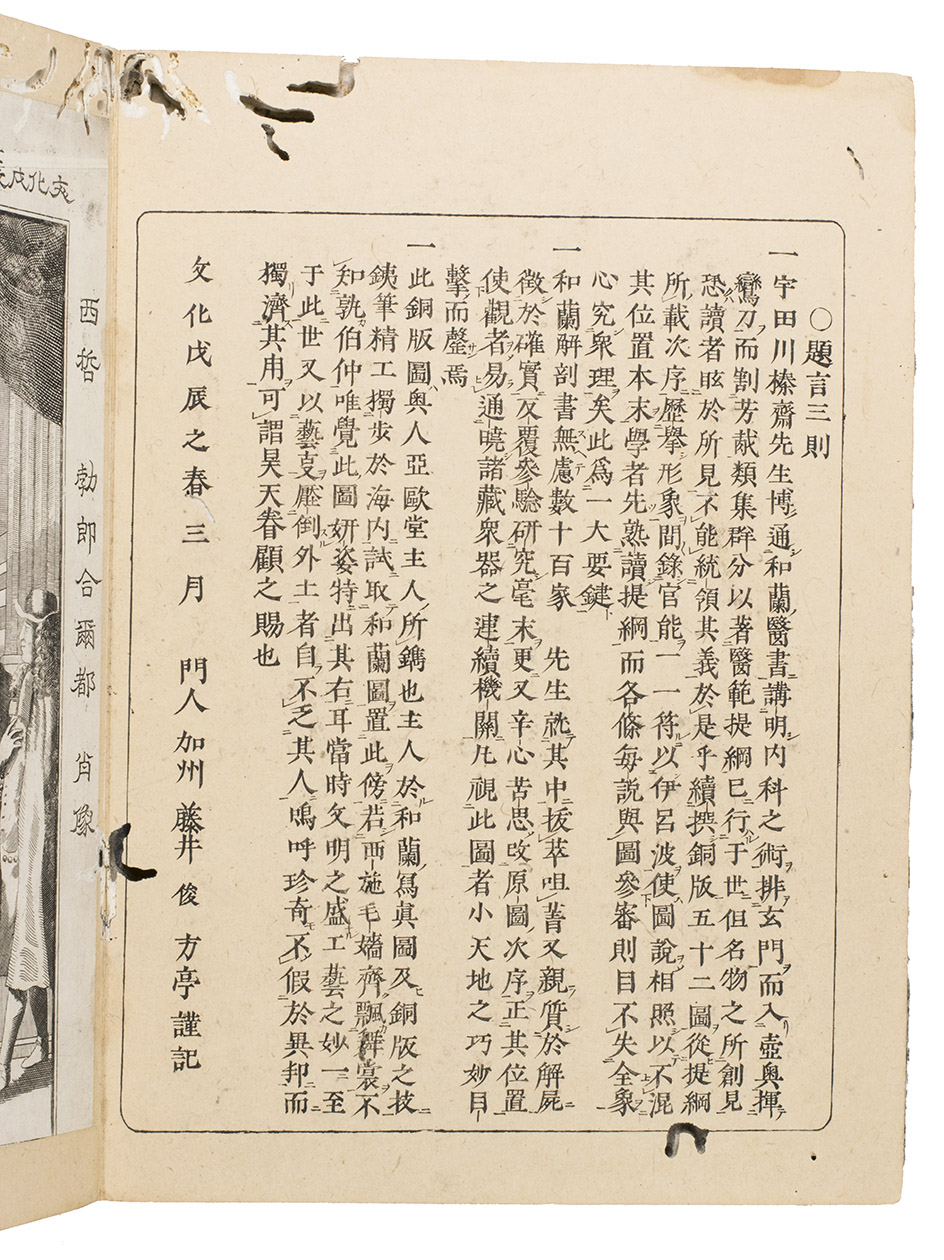 ○題言三則
一宇田川榛齋先生博通和蘭醫書講明内科之術排玄門而入壺奧揮
鸞刀而割芳献類集群分以著醫範提綱已行于世但名物之所創見
恐讀者眩於所見不能統領其義於是乎續撰銅版五十二圖從提綱
所載次序歷擧形象間錄官能一一符以伊呂波使圖說相照以不混
其位置本末學者先熟讀提綱而各條每說與圖參審則目不失全象
心究衆理矣此爲一大要鍵
一和蘭解剖書無慮數十百家 先生就其中拔萃咀菁又親質於解屍
徵於確實反覆參驗研究毫末更又辛心苦思改原圖次序正其位置
使觀者易通曉諸藏衆器之連續機關凡視此圖者小天地之巧妙目
擊而罄焉
一此銅版圖與人亞歐堂主人所鐫也主人於和蘭寫眞圖及銅版之技
銕筆精工獨步於海内試取和蘭圖置此傍若西施毛嬙齊飄舞裳不
知孰伯仲唯覺此圖姸姿特出其右耳當時文明之盛工藝之妙一至
于此世又以藝支壓倒外土者自不乏其人嗚呼珍奇不假於異邦而
獨濟其用可謂昊天眷顧之賜也
文化戊辰之春三月 門人 加州 藤井俊 方亭謹記
文化戊辰
西哲 勃郎合爾都 肖像